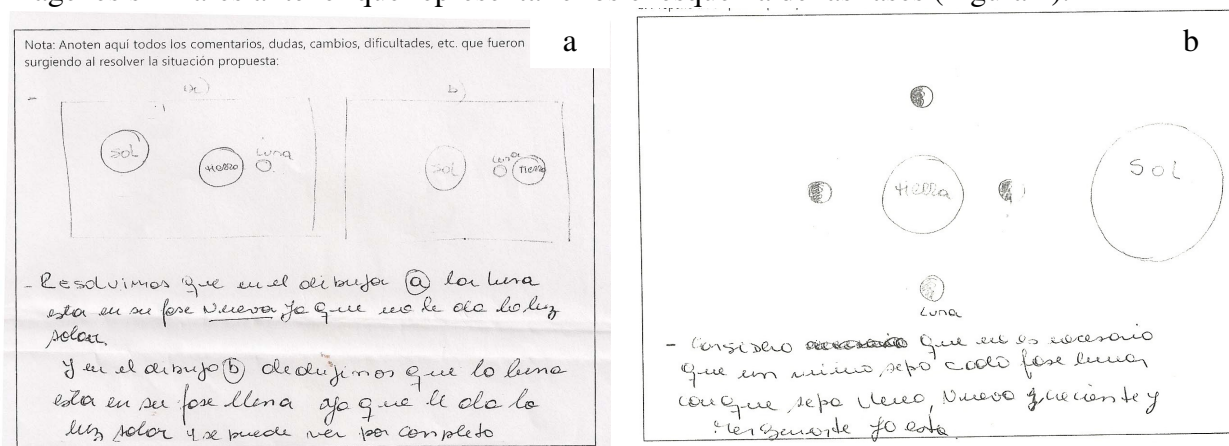 Nota: Anoten aquí todos los comentarios, dudas, cambios, dificultades, etc. que fueron
surgiendo al resolver la situación propuesta:
a
b)
SOL
tierra
Luna
SOL
Luna
Tierra
- Resolvimos que en el dibujo (a) la luna
esta en su fase Nueva ya que no le da la luz
solar.
Y en el dibujo (b) dedujimos que la luna
esta en su fase llena ya que le da la
luz solar y se puede ver por completo
b
tierra
SOL
Luna
- Considero que no es necesario
que un niño sepa cada fase lunar,
con que sepa llena, Nueva creciente y
ya esta